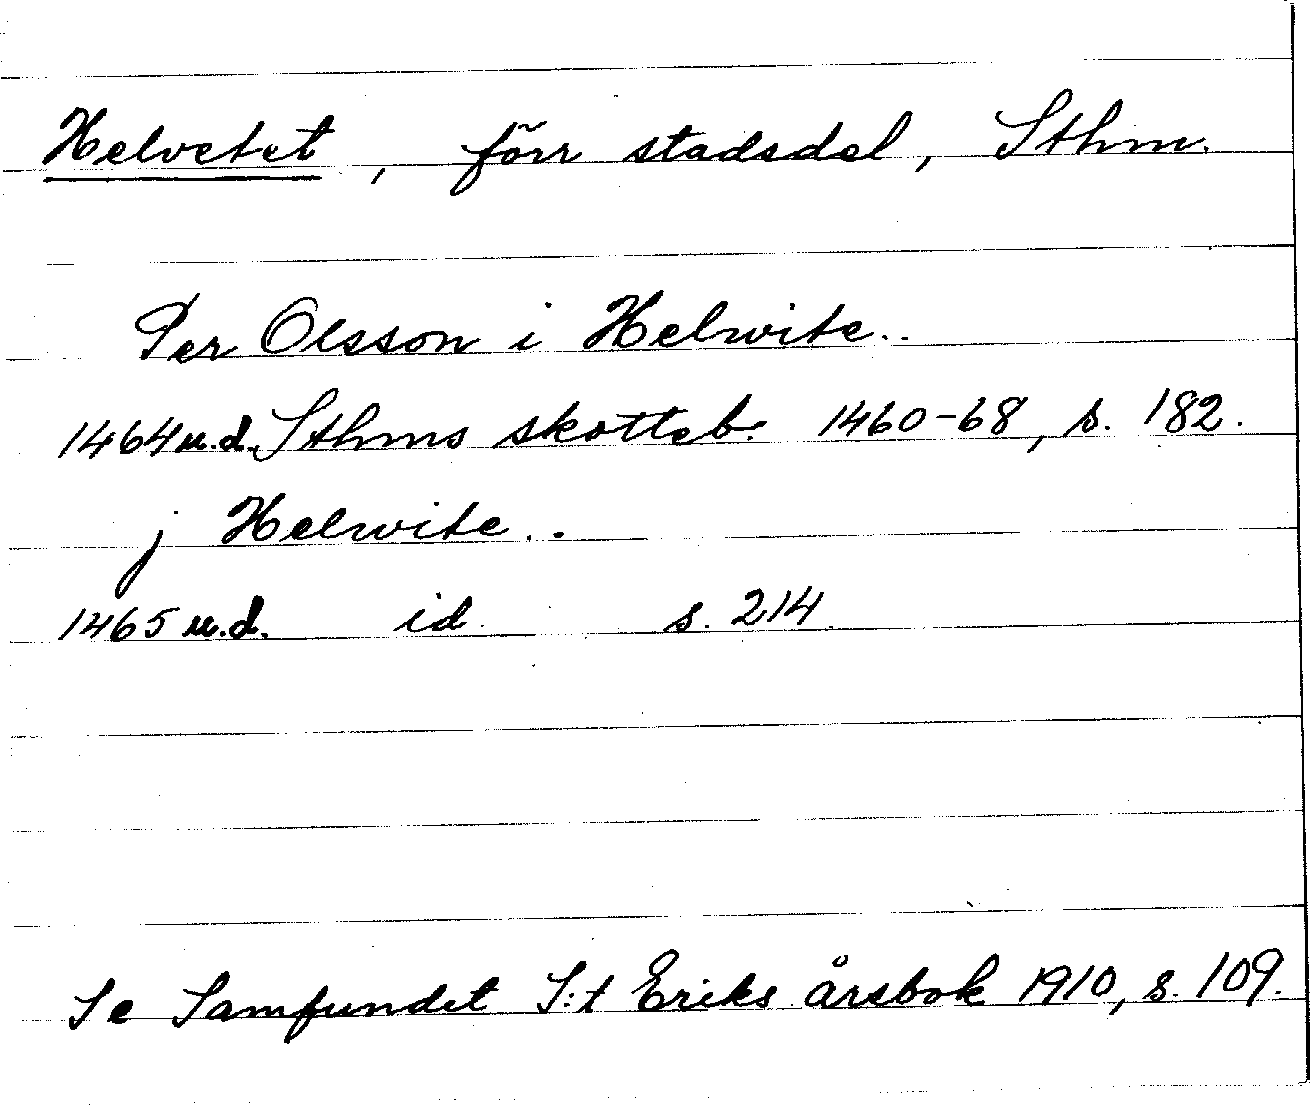 Helvetet, förr stadsdel, Sthm.
Per Olsson i Helwite..
1464 u.d. Sthms skotteb. 1460-68, s. 182.
j Helwite..
1465 u.d. id. s. 214.
Se Samfundet S:t Eriks årsbok 1910, s. 109.